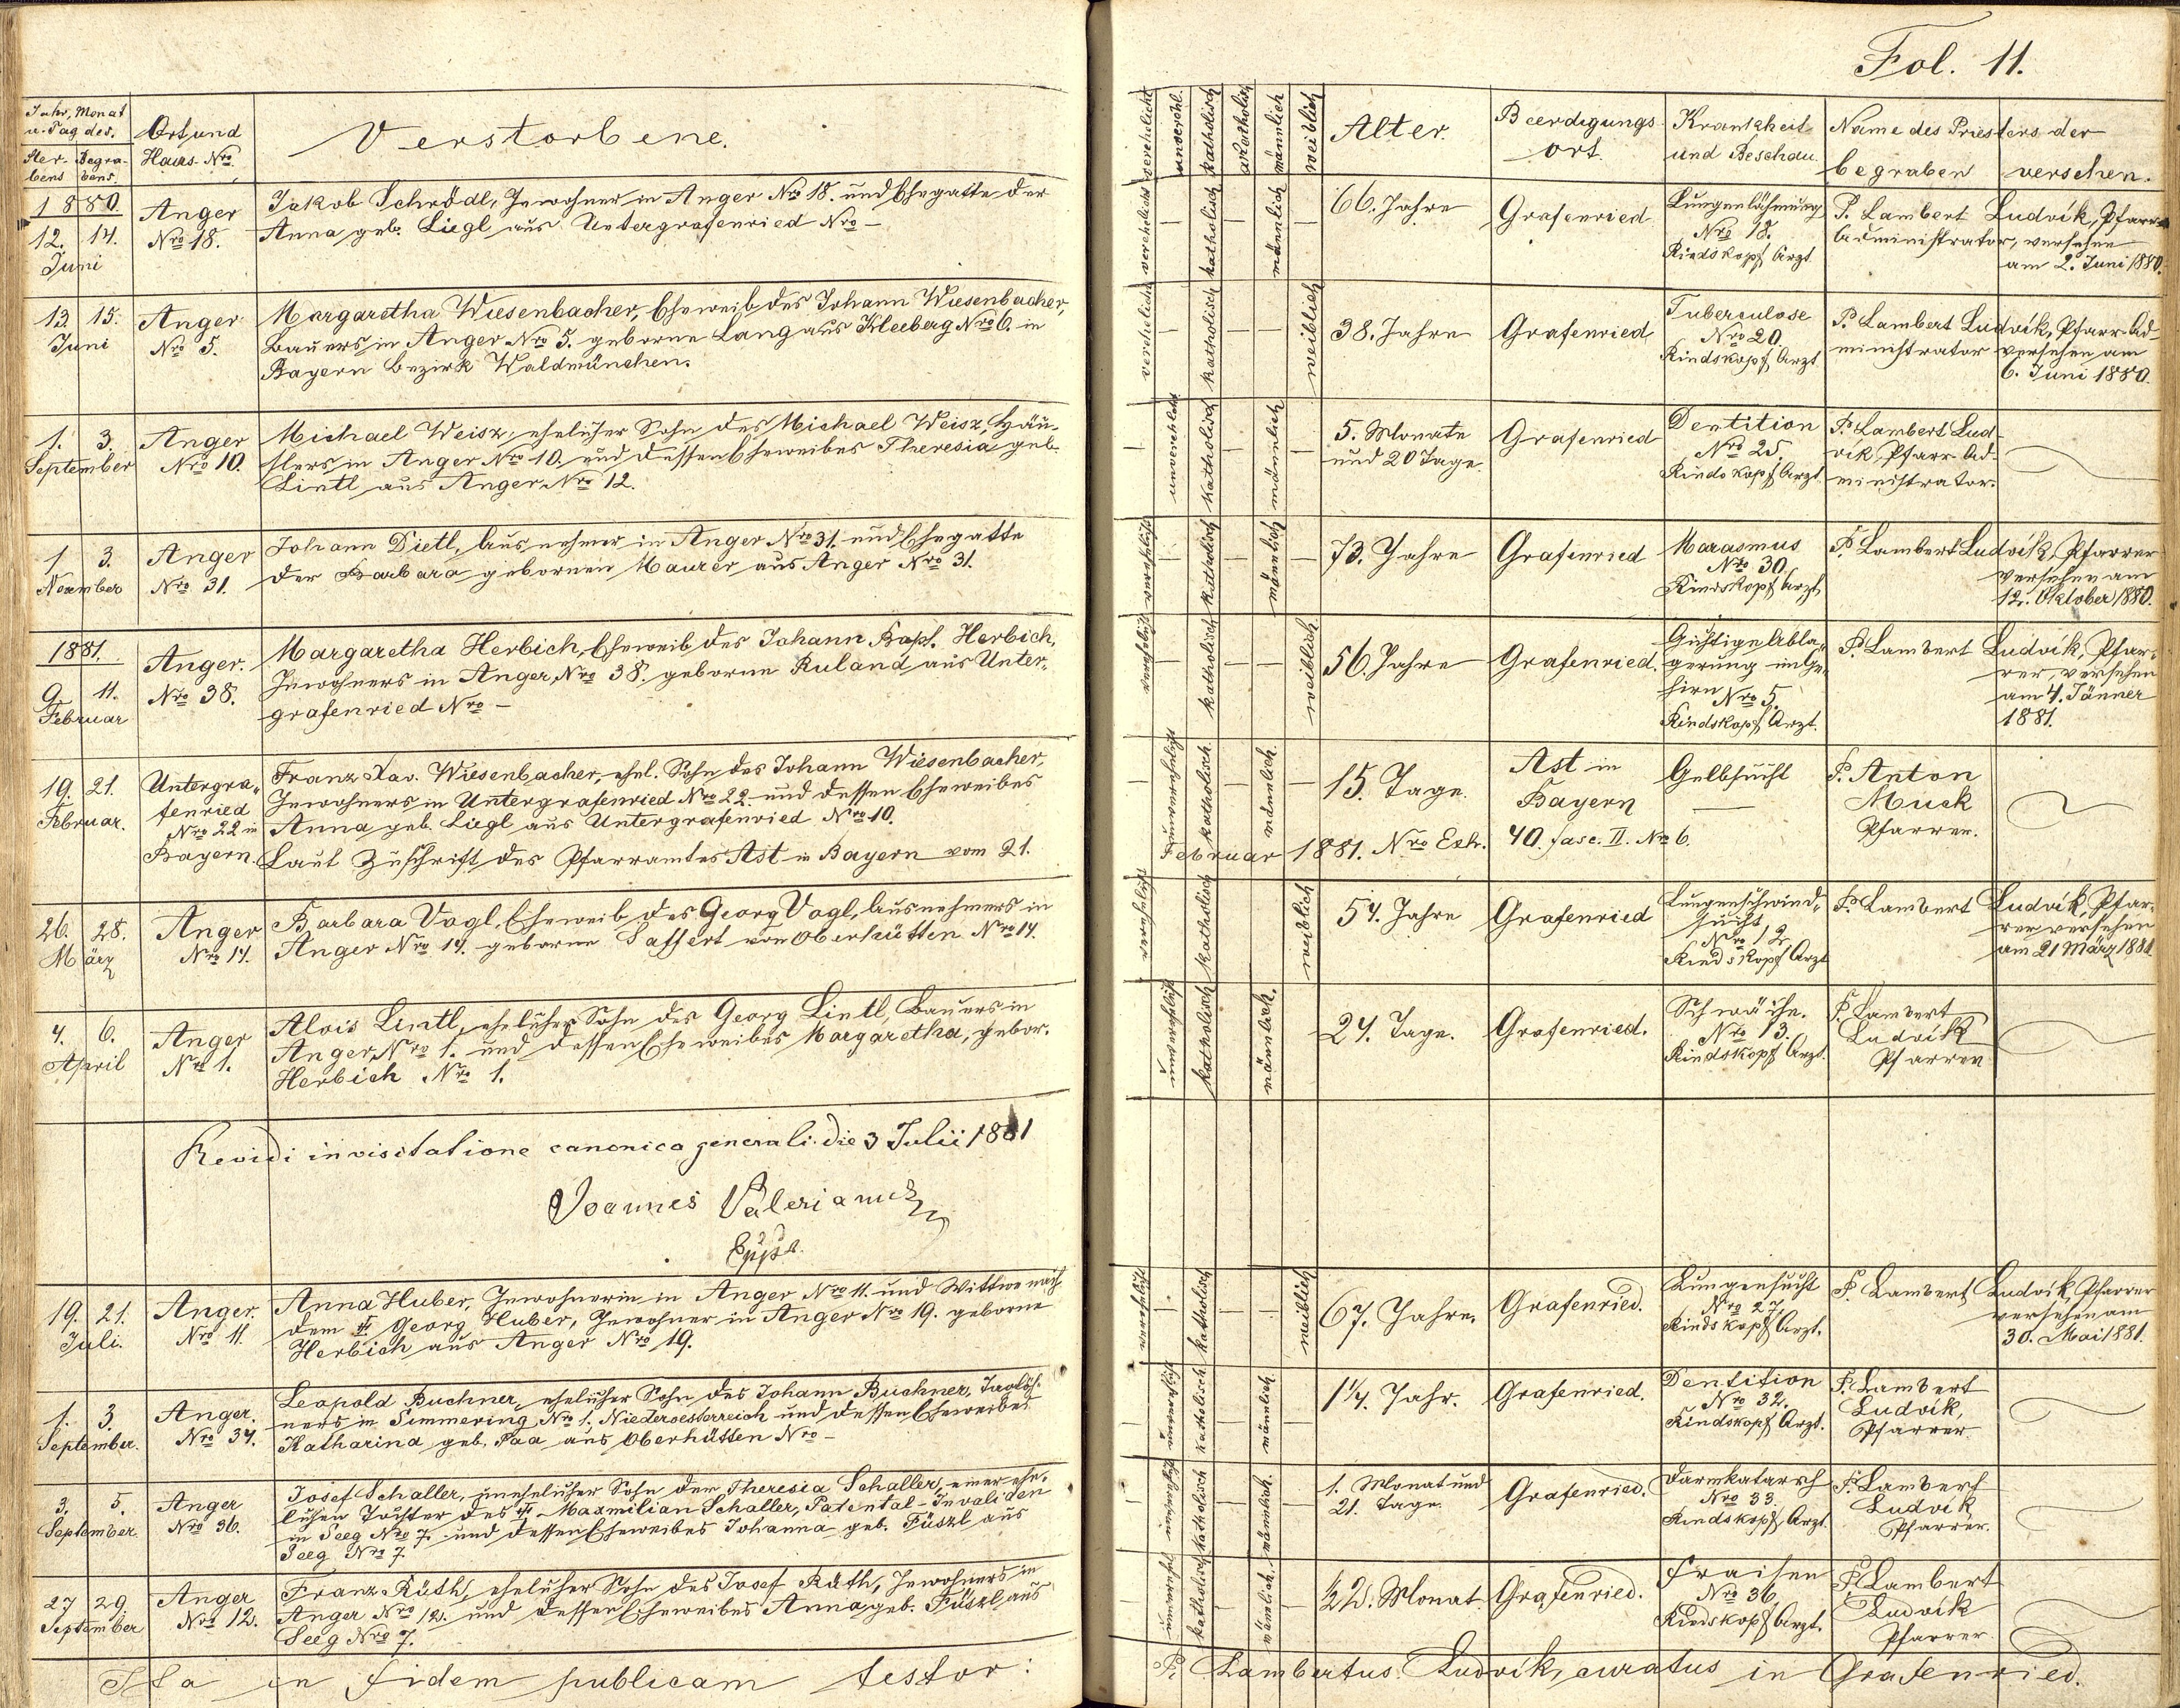 Fol. 11.
Jahr, Monat
u. Tag des.
Ster-
bens
Begra-
bens.
Ort und
Haus-Nro.
Verstorbene.
verehelicht
unverehl.
katholisch
akatholisch
männlich
weiblich
Alter.
Beerdigungs-
ort.
Krankheit
und Beschau.
Name des Priesters der
begraben versehen.
1880.
12. 14.
Juni
Anger
Nro 18.
Jakob Schrödl, Inwohner in Anger Nro 18. und Ehegatte der
Anna geb. Liegl aus Untergrafenried Nro –
verehelicht
katholisch
männlich
66. Jahre
Grafenried
Lungenlähmung
Nro 18.
Rindskopf Arzt
P. Lambert Ludvík, Pfarr-
administrator, versehen
am 2. Juni 1880.
13. 15.
Juni
Anger
Nro 5.
Margaretha Wiesenbacher, Eheweib des Johann Wiesenbacher,
Bauers in Anger Nro 5. geborne Lang aus Kleeberg Nro 6. in
Bayern Bezirk Waldmünchen.
verehelicht
katholisch
weiblich
38. Jahre
Grafenried
Tuberculose
Nro 20.
Rindskopf Arzt
P. Lambert Ludvík, Pfarr-Ad-
ministrator versehen am
6. Juni 1880.
1. 3.
September
Anger
Nro 10.
Michael Weisz, ehelicher Sohn des Michael Weisz, Häu-
slers in Anger Nro 10. und dessen Eheweibes Theresia geb.
Lintl aus Anger Nro 12.
unverehelicht
katholisch
männlich
5. Monate
und 20 Tage.
Grafenried
Dentition
Nro 25.
Rindskopf Arzt.
P. Lambert Lud-
vík, Pfarr-Ad-
ministrator.
1 3.
November
Anger
Nro 31.
Johann Dietl, Ausnehmer in Anger Nro 31. und Ehegatte
der Barbara gebornen Maurer aus Anger Nro 31.
verehelicht
katholisch
männlich
73. Jahre
Grafenried
Marasmus
Nro 30.
Rindskopf Arzt
P. Lambert Ludvík, Pfarrer
versehen am
12. Oktober 1880.
1881.
9. 11.
Februar
Anger.
Nro 38.
Margaretha Herbich, Eheweib des Johann Bapt. Herbich,
Inwohners in Anger, Nro 38. geborne Ruland aus Unter-
grafenried Nro –
verehelicht
katholisch
weiblich
56. Jahre
Grafenried.
Gichtige Abla-
gerung im Ge-
hirn Nro 5.
Rindskopf Arzt.
P. Lambert Ludvík, Pfar-
rer, versehen
am 4. Jänner
1881.
19. 21.
Februar.
Untergra-
fenried
Nro 22 in
Bayern.
Franz Xav. Wiesenbacher, ehel. Sohn des Johann Wiesenbacher,
Inwohners in Untergrafenried Nro 22. und dessen Eheweibes
Anna geb. Liegl aus Untergrafenried Nro 10.
Laut Zuschrift des Pfarramtes Ast in Bayern vom 21.
Februar 1881. Nro Exh. 40. fasc. II. Nro 6.
unverehelicht
katholisch
männlich.
15. Tage.
Ast in
Bayern
Gelbsucht
P. Anton
Muck
Pfarrer.
26. 28.
März
Anger
Nro 14.
Barbara Vogl, Eheweib des Georg Vogl, Ausnehmers in
Anger Nro 14. geborne Saffert von Oberhütten Nro 14.
verehelicht
katholisch
weiblich
54. Jahre
Grafenried
Lungenschwind-
sucht
Nro 12.
Rindskopf Arzt
P. Lambert Ludvík, Pfar-
rer versehen
am 21 März 1881
4. 6.
April
Anger
Nro 1.
Alois Lintl, ehelicher Sohn des Georg Lintl, Bauers in
Anger, Nro 1. und dessen Eheweibes Margaretha, gebor.
Herbich Nro 1.
unverehelicht
katholisch
männlich.
24. Tage.
Grafenried.
Schwäche.
Nro 13.
Rindskopf Arzt.
P. Lambert
Ludvík
Pfarrer
Revidi in visitatione canonica generali die 3 Julii 1881
Joannes Valerianus
Eppus.
19. 21.
Juli.
Anger.
Nro 11.
Anna Huber, Inwohnerin in Anger Nro 11. und Wittwe nach
dem † Georg Huber, Inwohner in Anger Nro 19. geborne
Herbich aus Anger Nro 19.
verehelicht
katholisch
weiblich
67. Jahre.
Grafenried.
Lungensucht
Nro 27.
Rindskopf Arzt.
P. Lambert Ludvík, Pfarrer
versehen am
30. Mai 1881.
1. 3.
September.
Anger.
Nro 34.
Leopold Buchner, ehelicher Sohn des Johann Buchner, Taglöh-
ners in Simmering Nro 1. Niederoesterreich und dessen Eheweibes
Katharina geb. Paa aus Oberhütten Nro –
unverehelicht
katholisch
männlich
1 1/4. Jahr.
Grafenried.
Dentition
Nro 32.
Rindskopf Arzt.
P. Lambert
Ludvík,
Pfarrer.
3. 5.
September.
Anger
Nro 36.
Josef Schaller, unehelicher Sohn der Theresia Schaller, einer ehe-
lichen Tochter des † Maxmilian Schaller, Patental-Invaliden
in Seeg Nro 7. und dessen Eheweibes Johanna geb. Füszl aus
Seeg Nro 7.
unverehelicht
katholisch
männlich.
1. Monat und
21. Tage.
Grafenried.
Darmkatarrh
Nro 33.
Rindskopf, Arzt.
P. Lambert
Ludvík
Pfarrer.
27 29
September
Anger
Nro 12.
Franz Rüth, ehelicher Sohn des Josef Rüth, Inwohners in
Anger Nro 12. und dessen Eheweibes Anna, geb. Füszl aus
Seeg Nro 7.
unverehel.
katholisch
männlich.
Monat
Grafenried.
Fraisen
Nro 36.
Rindskopf Arzt.
P. Lambert
Ludvík
Pfarrer
Ita in fidem publicam testor:
P. Lambertus Ludvík, curatus in Grafenried.